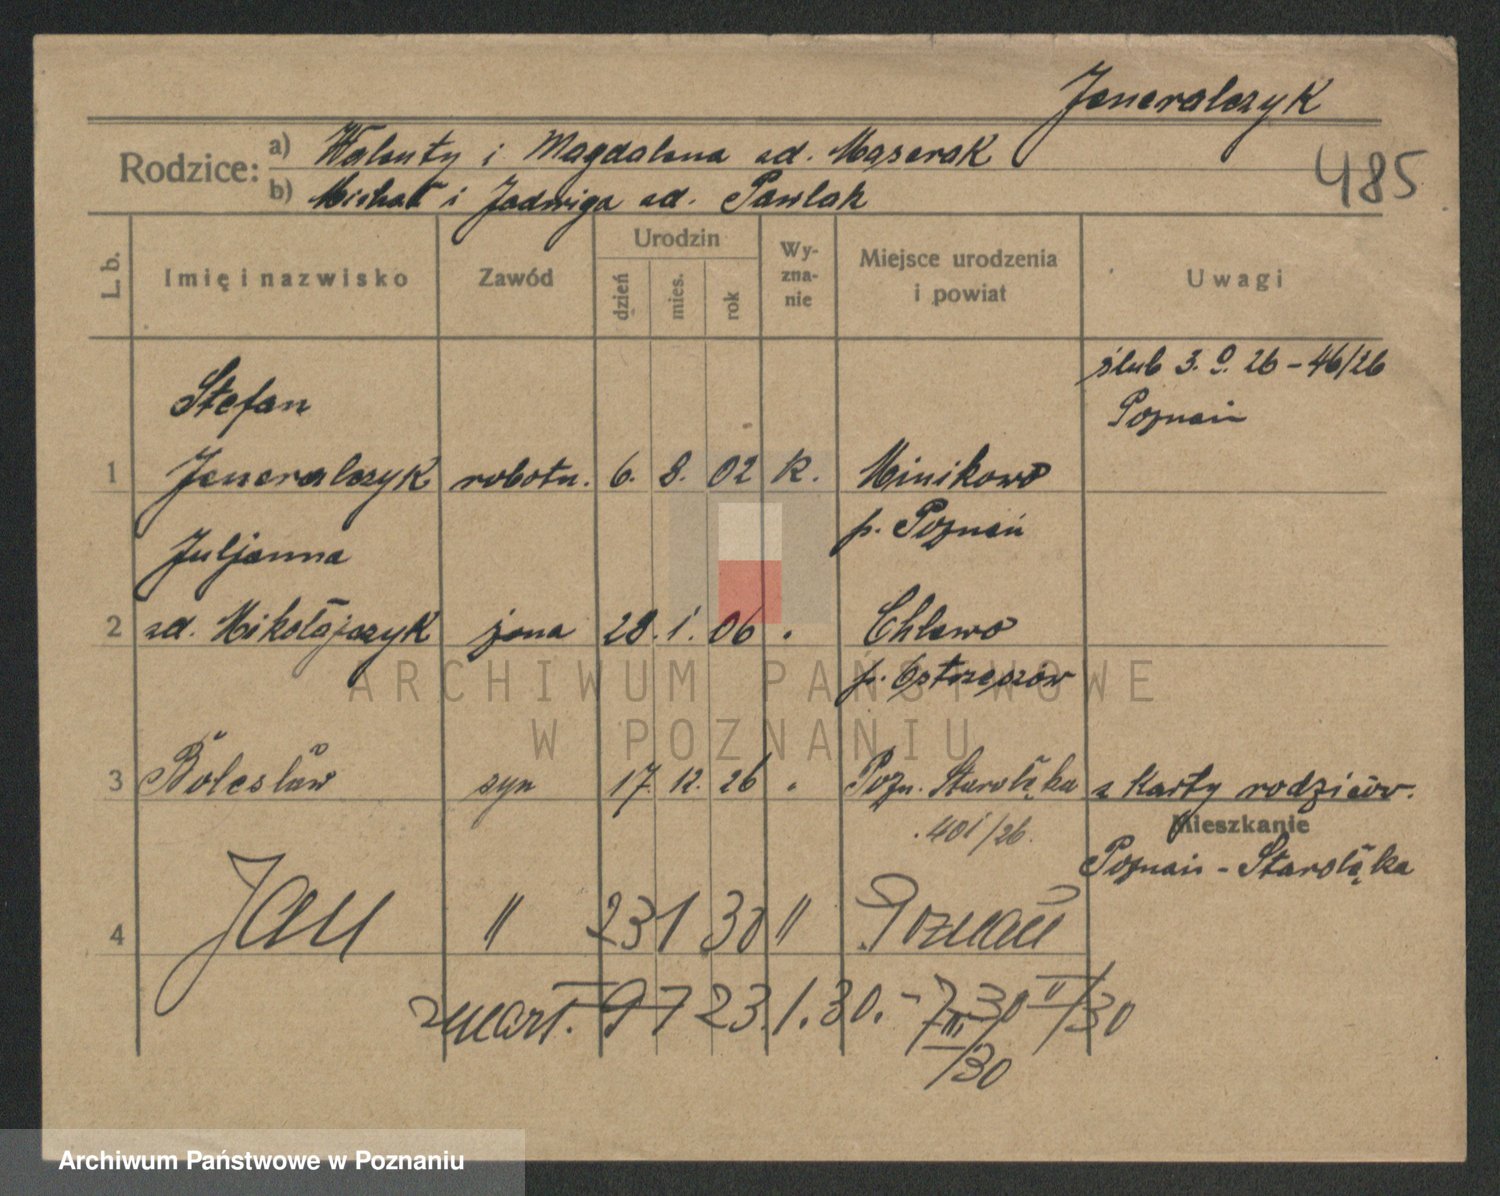 Jeneralczyk
Rodzice: a) Walenty i Magdalena zd. Mąserak
485
b) Michał i Jadwiga zd. Pawlak
L. b. Imię i nazwisko Zawód Urodzin dzień mies. rok Wy-zna-nie Miejsce urodzenia i powiat Uwagi
Stefan ślub 3. 26 - 46/26
Poznań
1 Jeneralczyk robotn. 6. 8. 02 k. Minikowo
p. Poznań
Juljanna
2 zd. Mikołajczyk żona 28. 1. 06 " Chlewo
p. Ostrzeszów
ARCHIWUM PAŃSTWOWE
W POZNANIU
3 Bolesław syn 17. 12. 26 " Pozn. Starołęka z karty rodziców.
401/26. Mieszkanie
Poznań - Starołęka
4 Jan " 23 1 30 " Poznań
zmarł. 23.1.30. -
/30
Archiwum Państwowe w Poznaniu